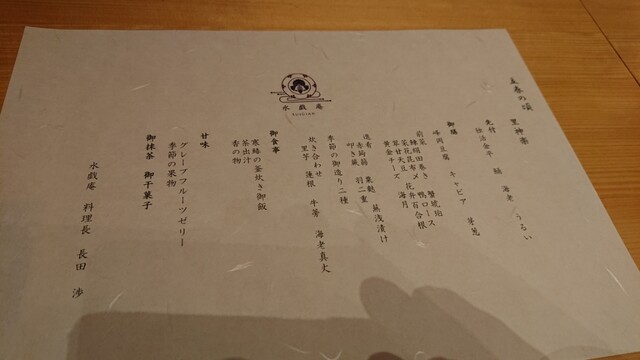 立春の頃 里神楽
先付
独活金平 鮑 海老 うるい
御膳
味両豆腐 キャビア 芽葱
前菜 蟹琥珀
錦絹田巻き 鴨ロース
菜花昆布〆 花弁百合根
草甘天豆 海月
黄金チーズ
浅漬け
赤蒟蒻 粟麩 羽二重
叩き蕨
季節の御造り二種
炊き合わせ
里芋 蓮根 牛蒡 海老真丈
御食事
寒椿の釜炊き御飯
茶出汁
香の物
甘味
グレープフルーツゼリー
季節の果物
御抹茶 御干菓子
水戯庵 料理長 長田 渉
水戯庵
SUIGIAN